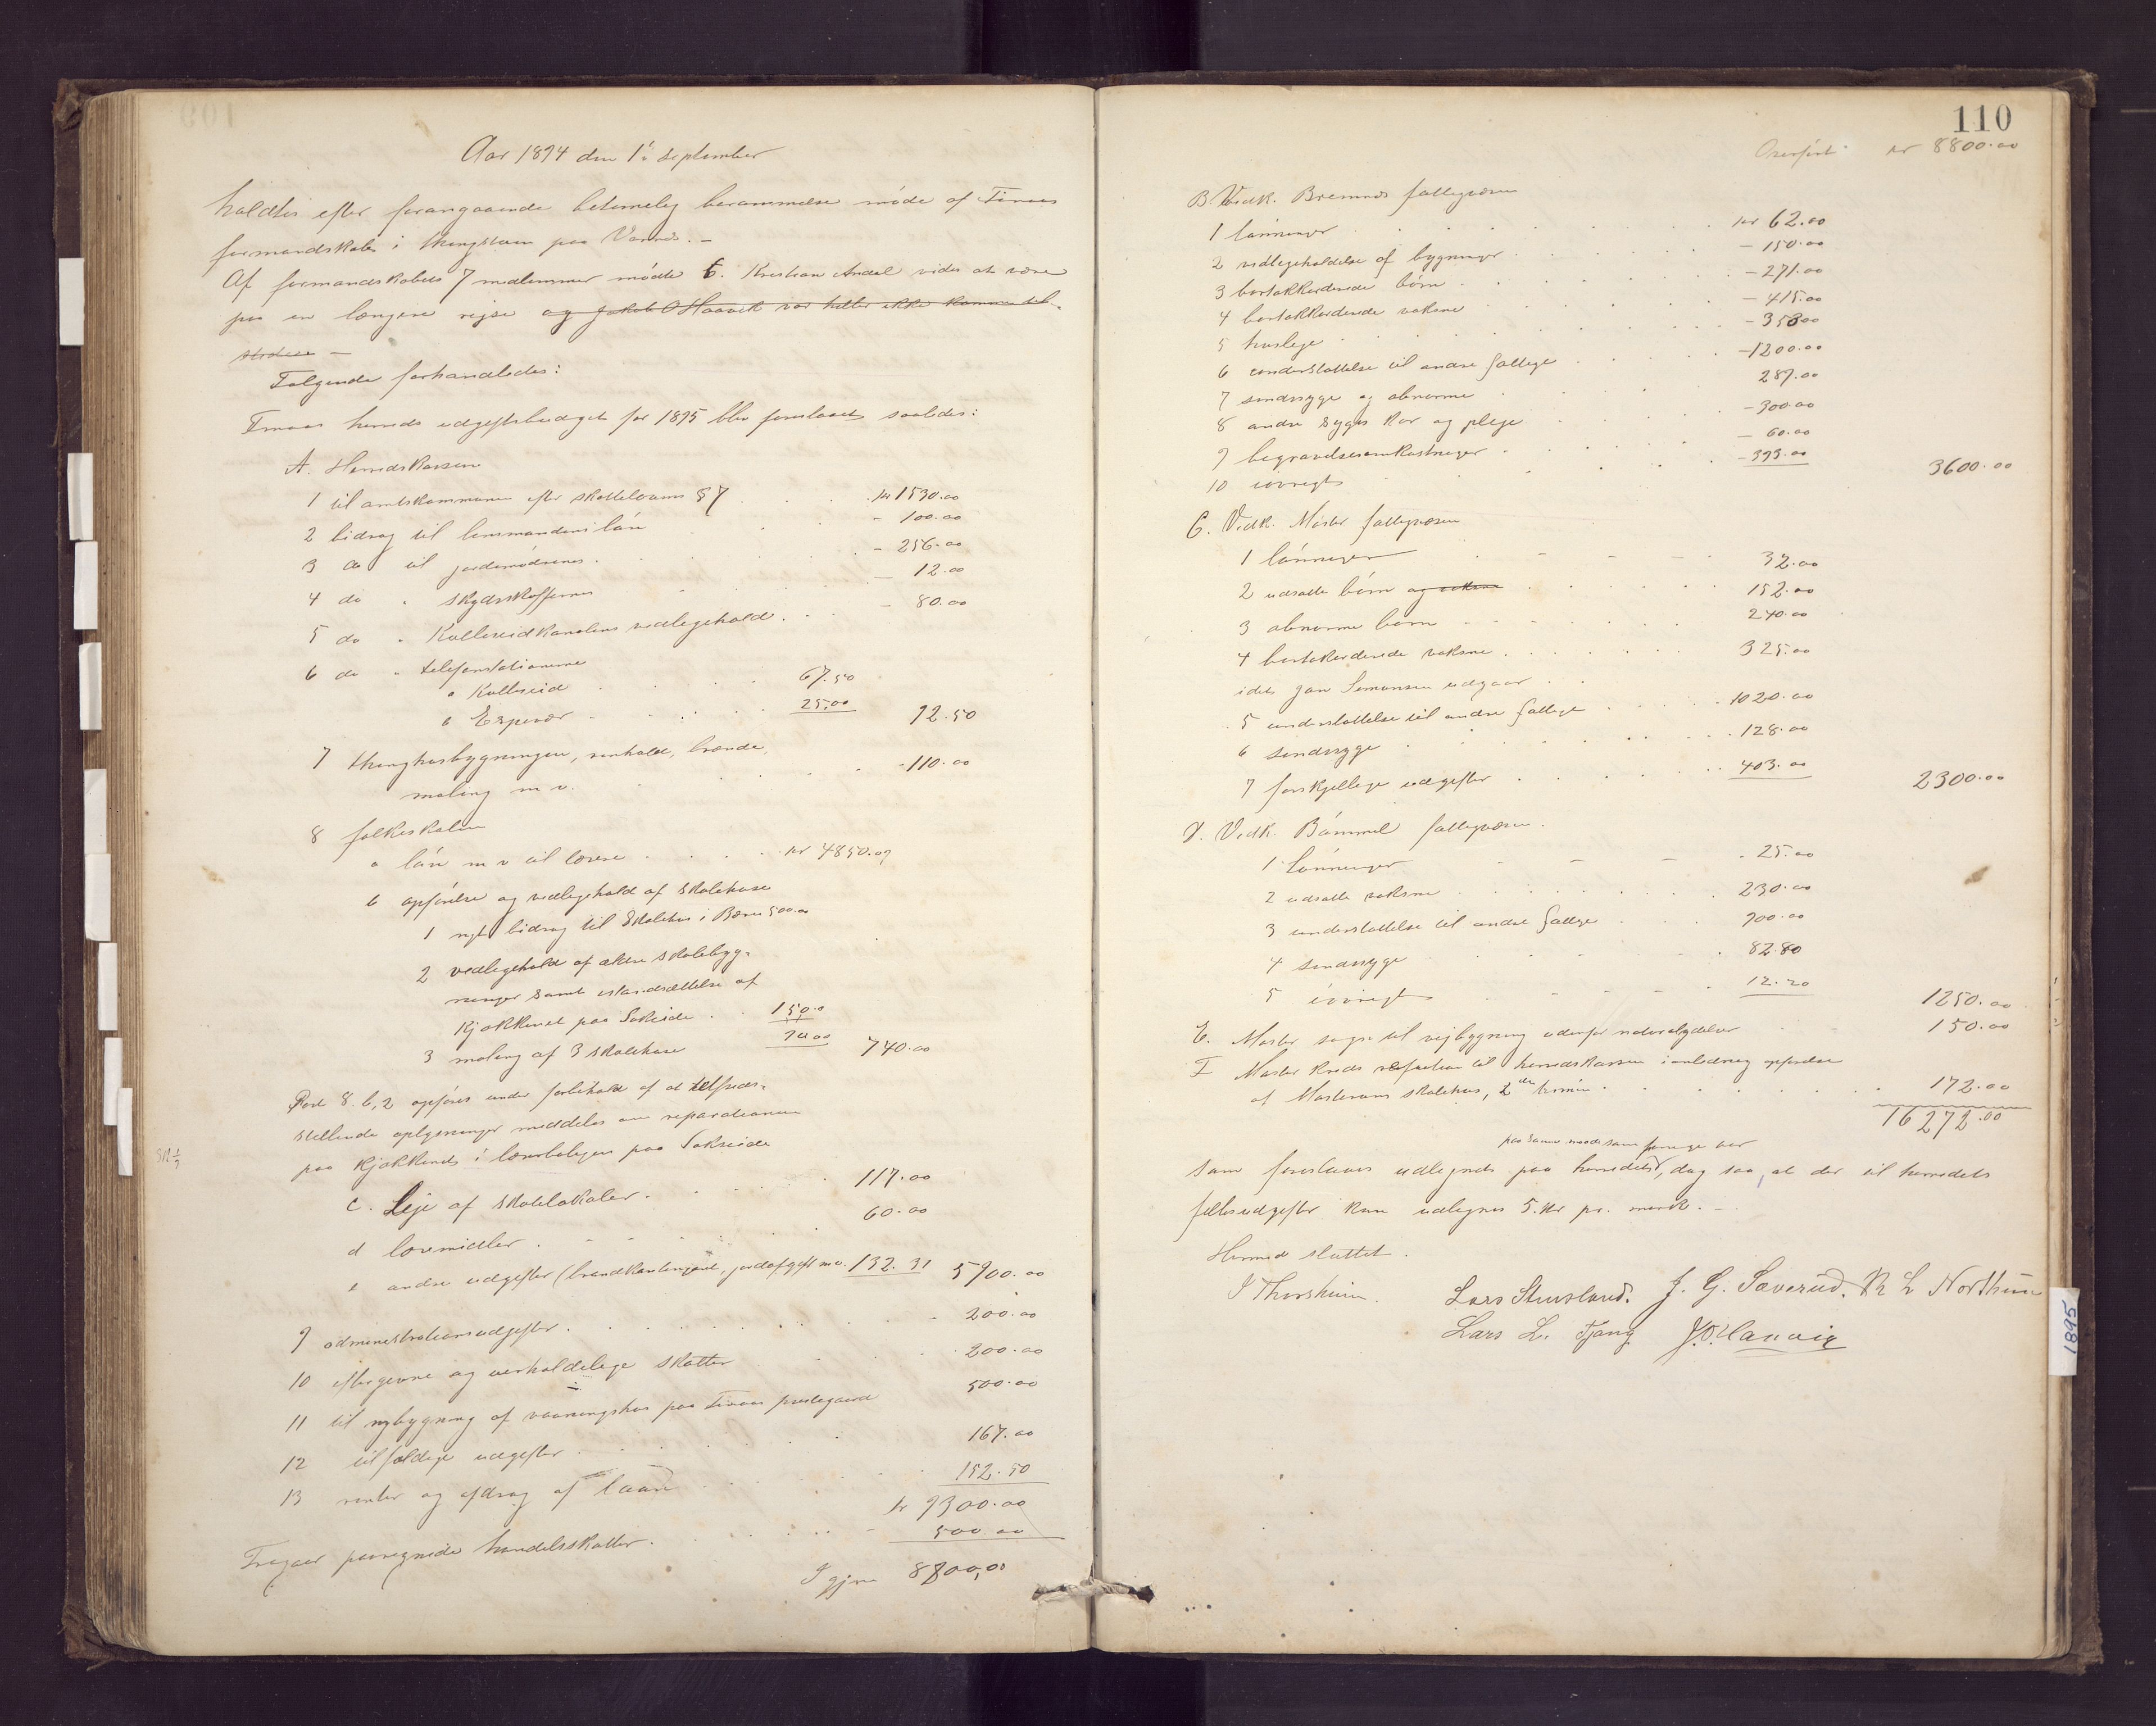 Aar 1894 den 1ᵗᵉ september
holdtes efter forangaaende betimelig berammelse møde af Finaas
formandskab i thingstuen paa Vannes. –
Af formandskabets 7 medlemmer mødte 6. Kristian Andal vides at være
paa en længere rejse og Jakob O Haavik var heller ikke kommen til-
stede –
Følgende forhandledes:
Finaas herreds udgiftsbudget for 1895 blev foreslaaet saaledes:
A. Herredskassen
1 til amtskommunen efter skatteloven § 7 kr 1530.00
2 bidrag til lensmandens løn - 100.00
3 do til jordemødrenes - 256.00
4 do " skydsskafferne - 12.00
5 do " Kulleseidkanalens vedligehold - 80.00
6 do " telefonstationerne
a Kulleseid 67.50
b Espevær 25.00 92.50
7 thinghusbygningen, renhold, brænde,
maling m v. - 110.00
8 folkeskolen
a løn m v til lærere kr 4850.09
b opførelse og vedligehold af skolehuse
1 nyt bidrag til skolehus i Børn 500.00
2 vedligehold af ældre skolebyg-
ninger samt istandsættelse af
kjøkkenet paa Sakseide 150.0
3 maling af 3 skolehuse 90.00 740.00
Post 8. b, 2 opføres under forbehold af at tilfreds-
stillende oplysninger meddeles om reparationen
paa kjøkkenet i lærerboligen paa Sakseide
c. Leje af skolelokaler 117.00
d læremidler 60.00
e andre udgifter (brandkontingent, jordafgift m v. 132.31 5900.00
9 administrationsudgifter 200.00
10 eftergivne og uerholdelige skatter 200.00
11 til nybygning af vaaningshus paa Finaas prestegaard 500.00
12 tilfældige udgifter 167.00
13 renter og afdrag af laan 152.50
kr 9300.00
Fragaar paaregnede handelsskatter 500.00
Igjen 8800,00
110
Overført kr 8800.00
B. Vedk. Bremnes fattigvæsen
1 lønninger kr 62.00
2 vedligeholdelse af bygninger - 150.00
3 bortakkorderede børn - 271.00
4 bortakkorderede voksne - 415.00
5 husleje - 35800
6 understøttelse til andre fattige - 1200.00
7 sindssyge og abnorme 289.00
8 andre syges kur og pleje - 300.00
9 begravelsesomkostninger - 60.00
10 iøvrigt - 393.00 3600.00
C. Vedk. Moster fattigvæsen
1 lønninger 32.00
2 udsatte børn og voksne 152.00
3 abnorme børn 240.00
4 bortakorderede voksne 325.00
idet Jan Simonsen udgaar
5 understøttelse til andre fattige 1020.00
6 sindssyge 128.00
7 forskjellige udgifter 403.00 2300.00
D. Vedk. Bømmel fattigvæsen.
1 lønninger 25.00
2 udsatte voksne 230.00
3 understøttelse til andre fattige 900.00
4 sindssyge 82.80
5 iøvrigt 12.20 1250.00
E. Moster sogn til vejbygning udenfor naturalydelser 150.00
F Moster kreds refusion til herredskassen i anledning opførelse
af Mosterøens skolehus, 2den termin 172.00
16272.00
paa samme maade som forrige aar
som foreslaaes udlignet paa herredet, dog saa, at der til herredets
fællesudgifter kun udlignes 5. kr pr. mark. –
Hermed sluttet.
J Thorsheim. Lars Stuvsland. J. G. Sæverud. R L Northun
Lars L. Tjong J. O. Haavik
1895